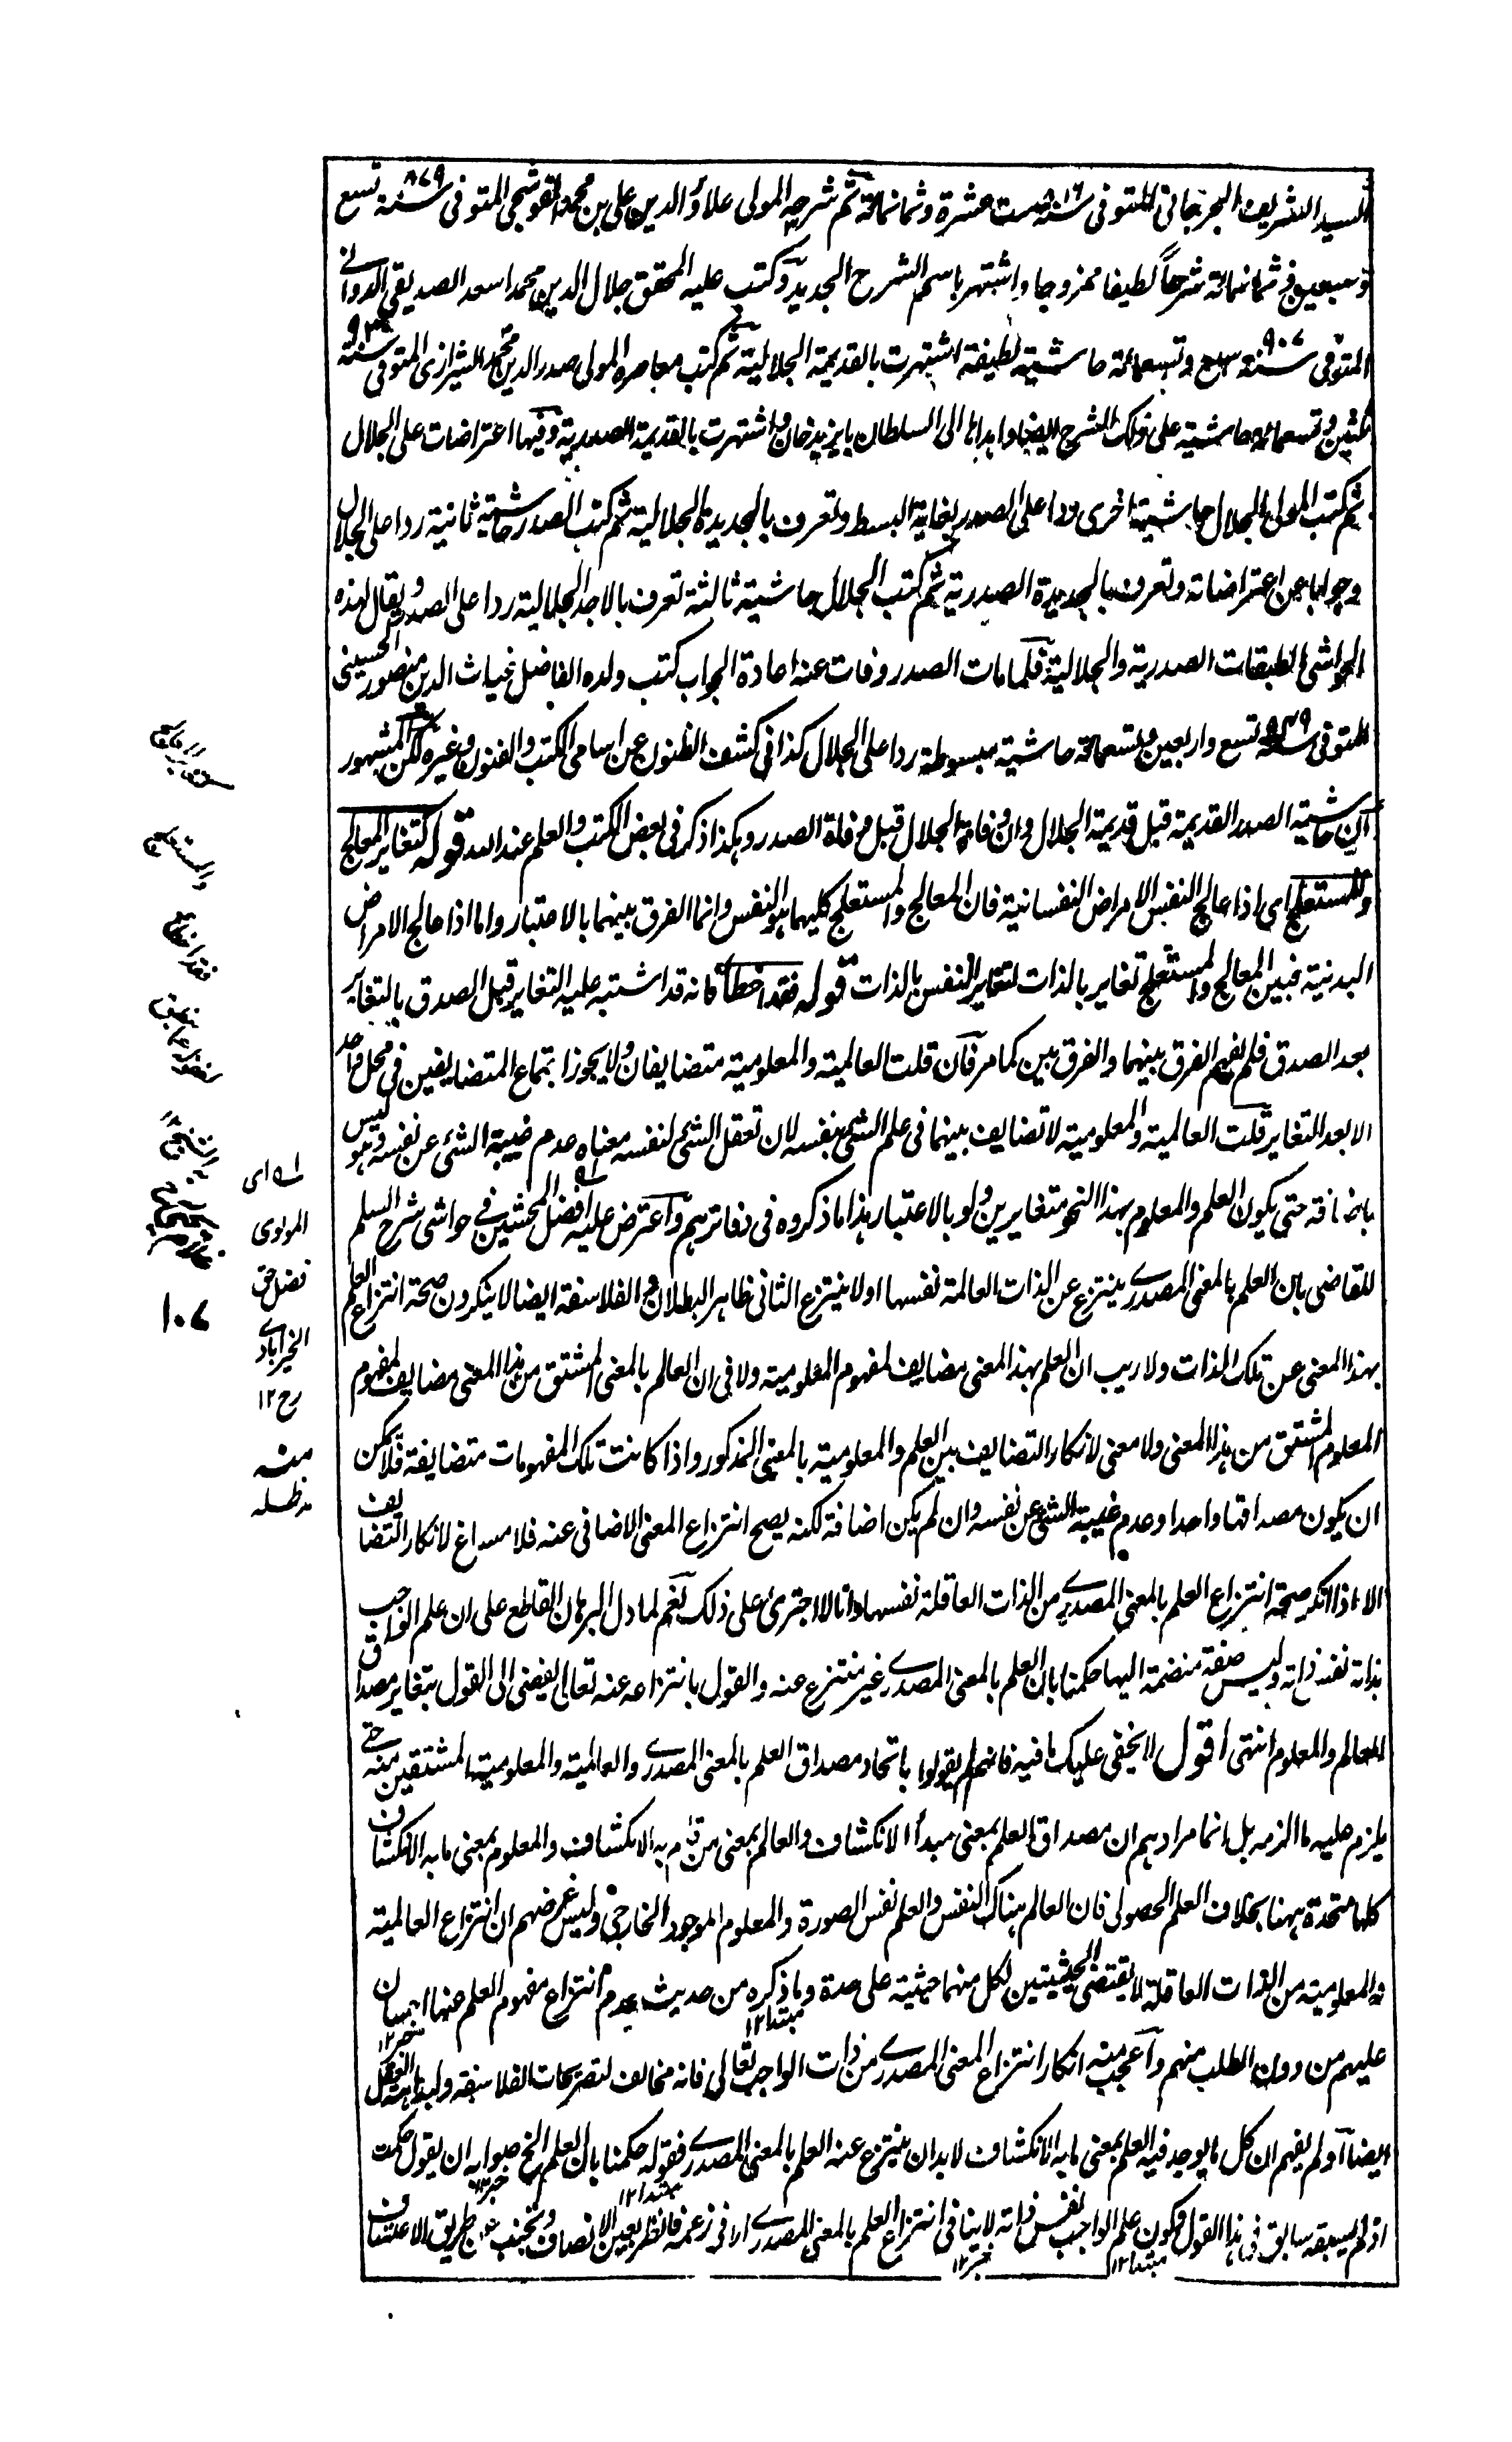 السيد الشريف الجرجاني المتوفى سنة ٨١٦ ست عشرة وثمانمائة ثم شرحه المولى علاؤ الدين على بن محمد القوشجي المتوفى سنة ٨٧٩ تسع
وسبعين وثمانمائة شرحاً لطيفا ممزوجا واشتهر باسم الشرح الجديد وكتب عليه المحقق جلال الدين محمد اسعد الصديقي الدواني
المتوفى سنة ٩٠٧ سبع وتسعمائة حاشية لطيفة اشتهرت بالقديمة الجلالية ثم كتب معاصره المولى صدر الدين محمد الشيرازى المتوفى سنة ٩٣٠
ثلثين وتسعمائة حاشية على ذلك الشرح ايضا واهداها الى السلطان بايزيد خان واشتهرت بالقديمة الصدرية وفيها اعتراضات على الجلال
ثم كتب المولى الجلال حاشية اخرى ردا على الصدر بغاية البسط وتعرف بالجديدة الجلالية ثم كتب الصدر حاشية ثانية ردا على الجلال
وجوابا عن اعتراضاته وتعرف بالجديدة الصدرية ثم كتب الجلال حاشية ثالثة تعرف بالاجد الجلالية ردا على الصدر ويقال لهذه
الحواشى الطبقات الصدرية والجلالية فلما مات الصدر وفات عنه اعادة الجواب كتب ولده الفاضل غياث الدين منصور الحسينى
المتوفى سنة ٩٤٩ تسع واربعين وتسعمائة حاشية مبسوطة ردا على الجلال كذا فى كشف الظنون عن اسامى الكتب والفنون وغيره لكن المشهور
ان حاشية الصدر القديمة قبل قديمة الجلال وان وفاة الجلال قبل وفاة الصدر وهكذا ذكر فى بعض الكتب والعلم عند الله قوله كتغاير المعالج
والمستعلج اى اذا عالج النفس الامراض النفسانية فان المعالج والمستعلج كليهما هو النفس وانما الفرق بينهما بالاعتبار واما اذا عالج الامراض
البدنية فبين المعالج والمستعلج تغاير بالذات لتغاير النفس بالذات قوله فقد اخطأ كانه قد اشتبه عليه التغاير قبل الصدق بالتغاير
بعد الصدق فلم يفهم الفرق بينهما والفرق بين كما مر فان قلت العالمية والمعلومية متضايفان ولا يجوز اجتماع المتضايفين فى محل واحد
الا بعد التغاير قلت العالمية والمعلومية لا تضايف بينهما فى علم الشئ بنفسه لان تعقل الشئ لنفسه معناه عدم غيبة الشئ عن نفسه وهو ليس
باضافة حتى يكون العلم والمعلوم بهذا النحو متغايرين ولو بالاعتبار هذا ما ذكروه فى دفاترهم واعترض عليه افضل المحشيين فى حواشى شرح السلم
للقاضى بان العلم بالمعنى المصدرى ينتزع عن الذات العالمة نفسها اولا ينتزع الثانى ظاهر البطلان والفلاسفة ايضا لا ينكرون صحة انتزاع العلم
بهذا المعنى عن تلك الذات ولا ريب ان العلم بهذا المعنى مضايف لمفهوم المعلومية ولا فى ان العالم بالمعنى المشتق من هذا المعنى مضايف لمفهوم
المعلوم المشتق من هذا المعنى ولا معنى لانكار التضايف بين العلم والمعلومية بالمعنى المذكور واذا كانت تلك المفهومات متضايفة فلا يمكن
ان يكون مصداقها واحدا وعدم غيبة الشئ عن نفسه وان لم يكن اضافة لكنه يصح انتزاع المعنى الاضافى عنه فلا مساغ لانكار التضايف
الا اذا انكر صحة انتزاع العلم بالمعنى المصدرى من الذات العاقلة نفسها وانا لا اجترئ على ذلك نعم لما دل البرهان القاطع على ان علم الواجب
بذاته نفس ذاته وليس صفة منضمة اليها حكمنا بان العلم بالمعنى المصدرى غير منتزع عنه والقول بانتزاعه عنه تعالى يفضى الى القول بتغاير مصداق
العالم والمعلوم انتهى اقول لا يخفى عليك ما فيه فانهم لم يقولوا باتحاد مصداق العلم بالمعنى المصدرى والعالمية والمعلومية المشتقين منه حتى
يلزم عليه ما الزمه بل انما مرادهم ان مصداق العلم بمعنى مبدأ الانكشاف والعالم بمعنى من قام به الانكشاف والمعلوم بمعنى ما به الانكشاف
كلها متحدة ههنا بخلاف العلم الحصولى فان العالم هناك النفس والعلم نفس الصورة والمعلوم الموجود الخارجى وليس غرضهم ان انتزاع العالمية
والمعلومية من الذات العاقلة لا يقتضى الحيثيتين لكل منهما حيثية على حدة وما ذكره من حديث عدم انتزاع مفهوم العلم عنها احسان
مبتدا ١٢ خبر ١٢
عليهم من دون الطلب منهم واعجب منه انكار انتزاع المعنى المصدرى من ذات الواجب تعالى فانه مخالف لتصريحات الفلاسفة ولبداهة العقل
ايضا أو لم يفهم ان كل ما يوجد فيه العلم بمعنى ما به الانكشاف لابد ان ينتزع عنه العلم بالمعنى المصدرى فقوله حكمنا بان العلم الخ صوابه ان يقول حكمت
مبتدا ١٢ خبر ١٢
اذ لم يسبقه سابق فى هذا القول وكون علم الواجب نفس ذاته لا ينافى انتزاع العلم بالمعنى المصدرى الا فى زعمه فانظر بعين الانصاف وتجنب عن طريق الاعتساف
مبتدا ١٢ خبر ١٢
له اى
المولوى
فضل حق
الخيرآبادى
رح ١٢
منه
مدظله
١٠٧